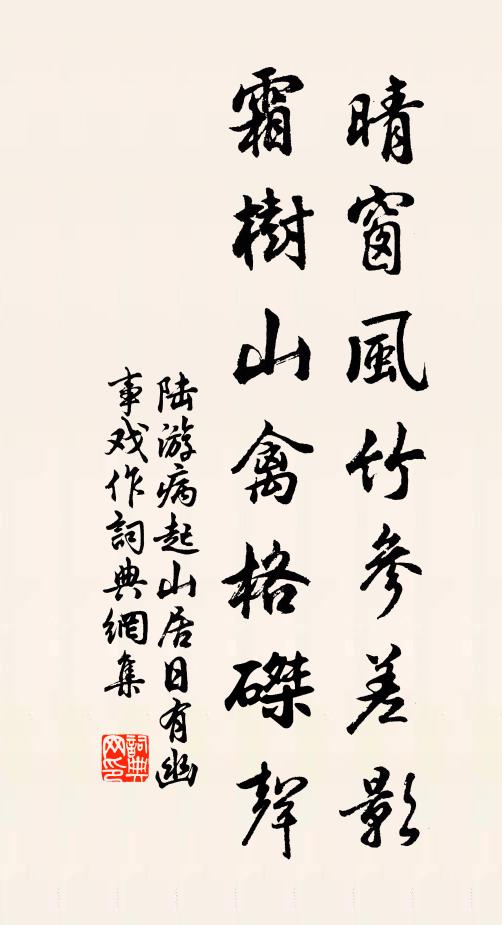 晴窗風竹參差影
霜樹山禽格磔聲
陆游病起山居日有幽
事戏作詞典網集
詞典網印